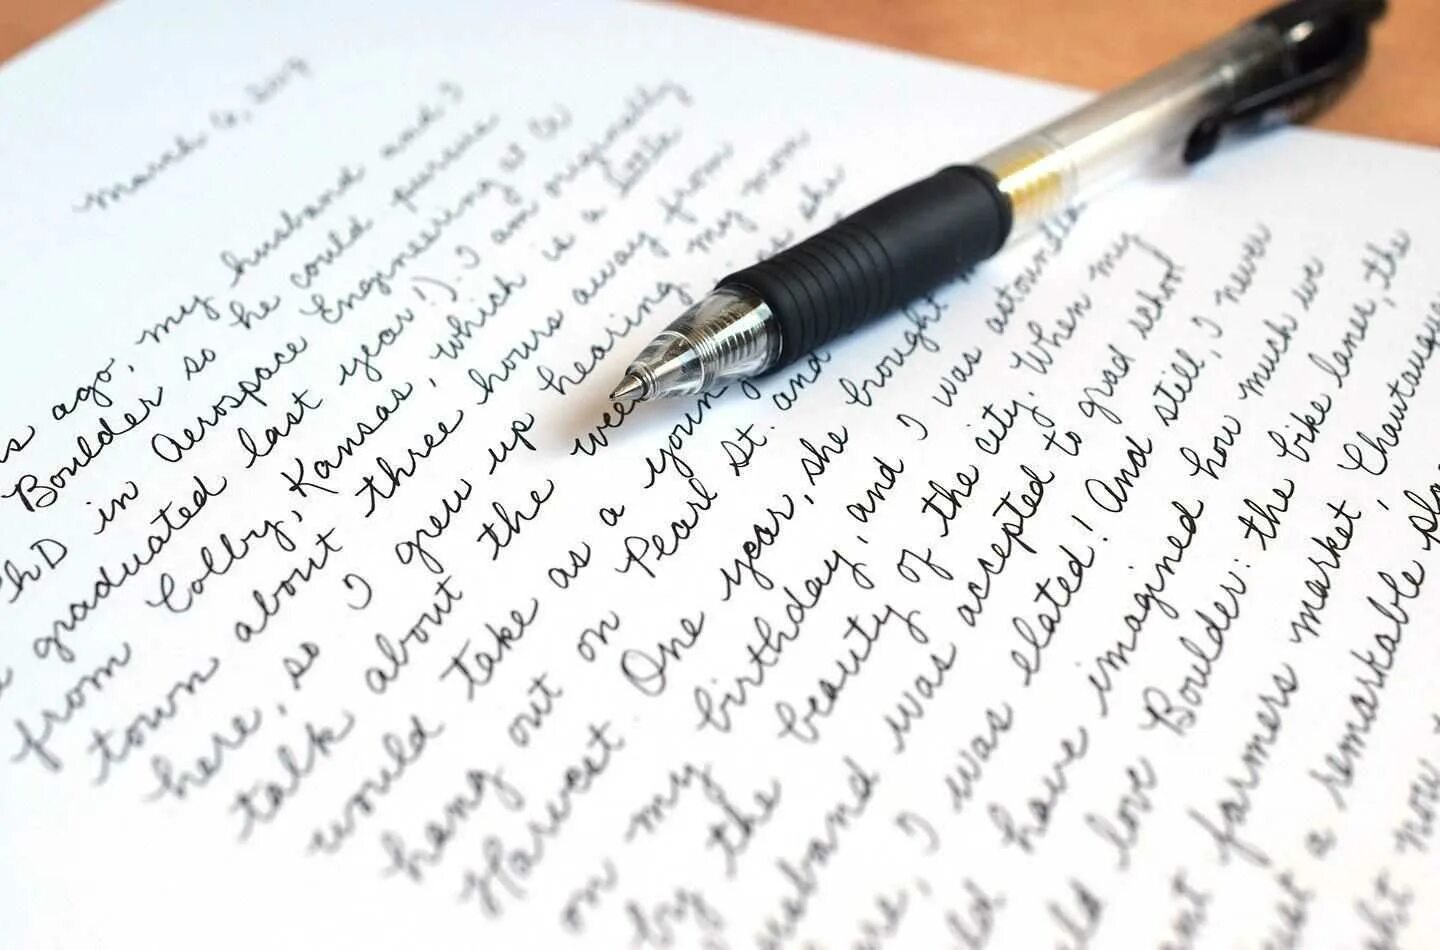 March 6, 2017
ago, my husband and I
Boulder so he could pursue
PhD in Aerospace Engineering at
graduated last year!). I am originally
from Colby, Kansas, which is a little
town about three hours away from
here, so I grew up hearing my mom
talk about the she
would take as a young
hang out on Pearl St. and
Harvest One year, she brought
on my birthday, and I was
by the beauty of the city. When my
husband was accepted to grad school
I was elated! And still, I never
have imagined how much we
love Boulder: the bike lanes, the
farmers market, Chautauqua
a remarkable
now